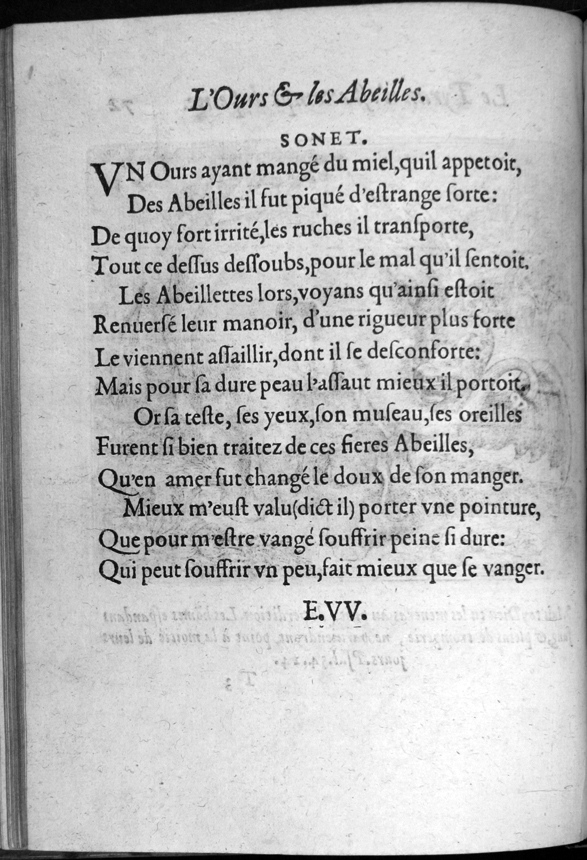 L'Ours & les Abeilles.
SONET.
VN Ours ayant mangé du miel,quil appetoit,
Des Abeilles il fut piqué d'eſtrange ſorte:
De quoy fort irrité,les ruches il tranſporte,
Tout ce deſſus deſſoubs,pour le mal qu'il ſentoit.
Les Abeillettes lors,voyans qu'ainſi eſtoit
Renuerſé leur manoir, d'une rigueur plus forte
Le viennent aſſaillir,dont il ſe deſconforte:
Mais pour ſa dure peau l'aſſaut mieux il portoit.
Or ſa teſte, ſes yeux,ſon muſeau,ſes oreilles
Furent ſi bien traitez de ces fieres Abeilles,
Qu'en amer fut changé le doux de ſon manger.
Mieux m'euſt valu(dict il) porter vne pointure,
Que pour m'eſtre vangé ſouffrir peine ſi dure:
Qui peut ſouffrir vn peu,fait mieux que ſe vanger.
E.VV.